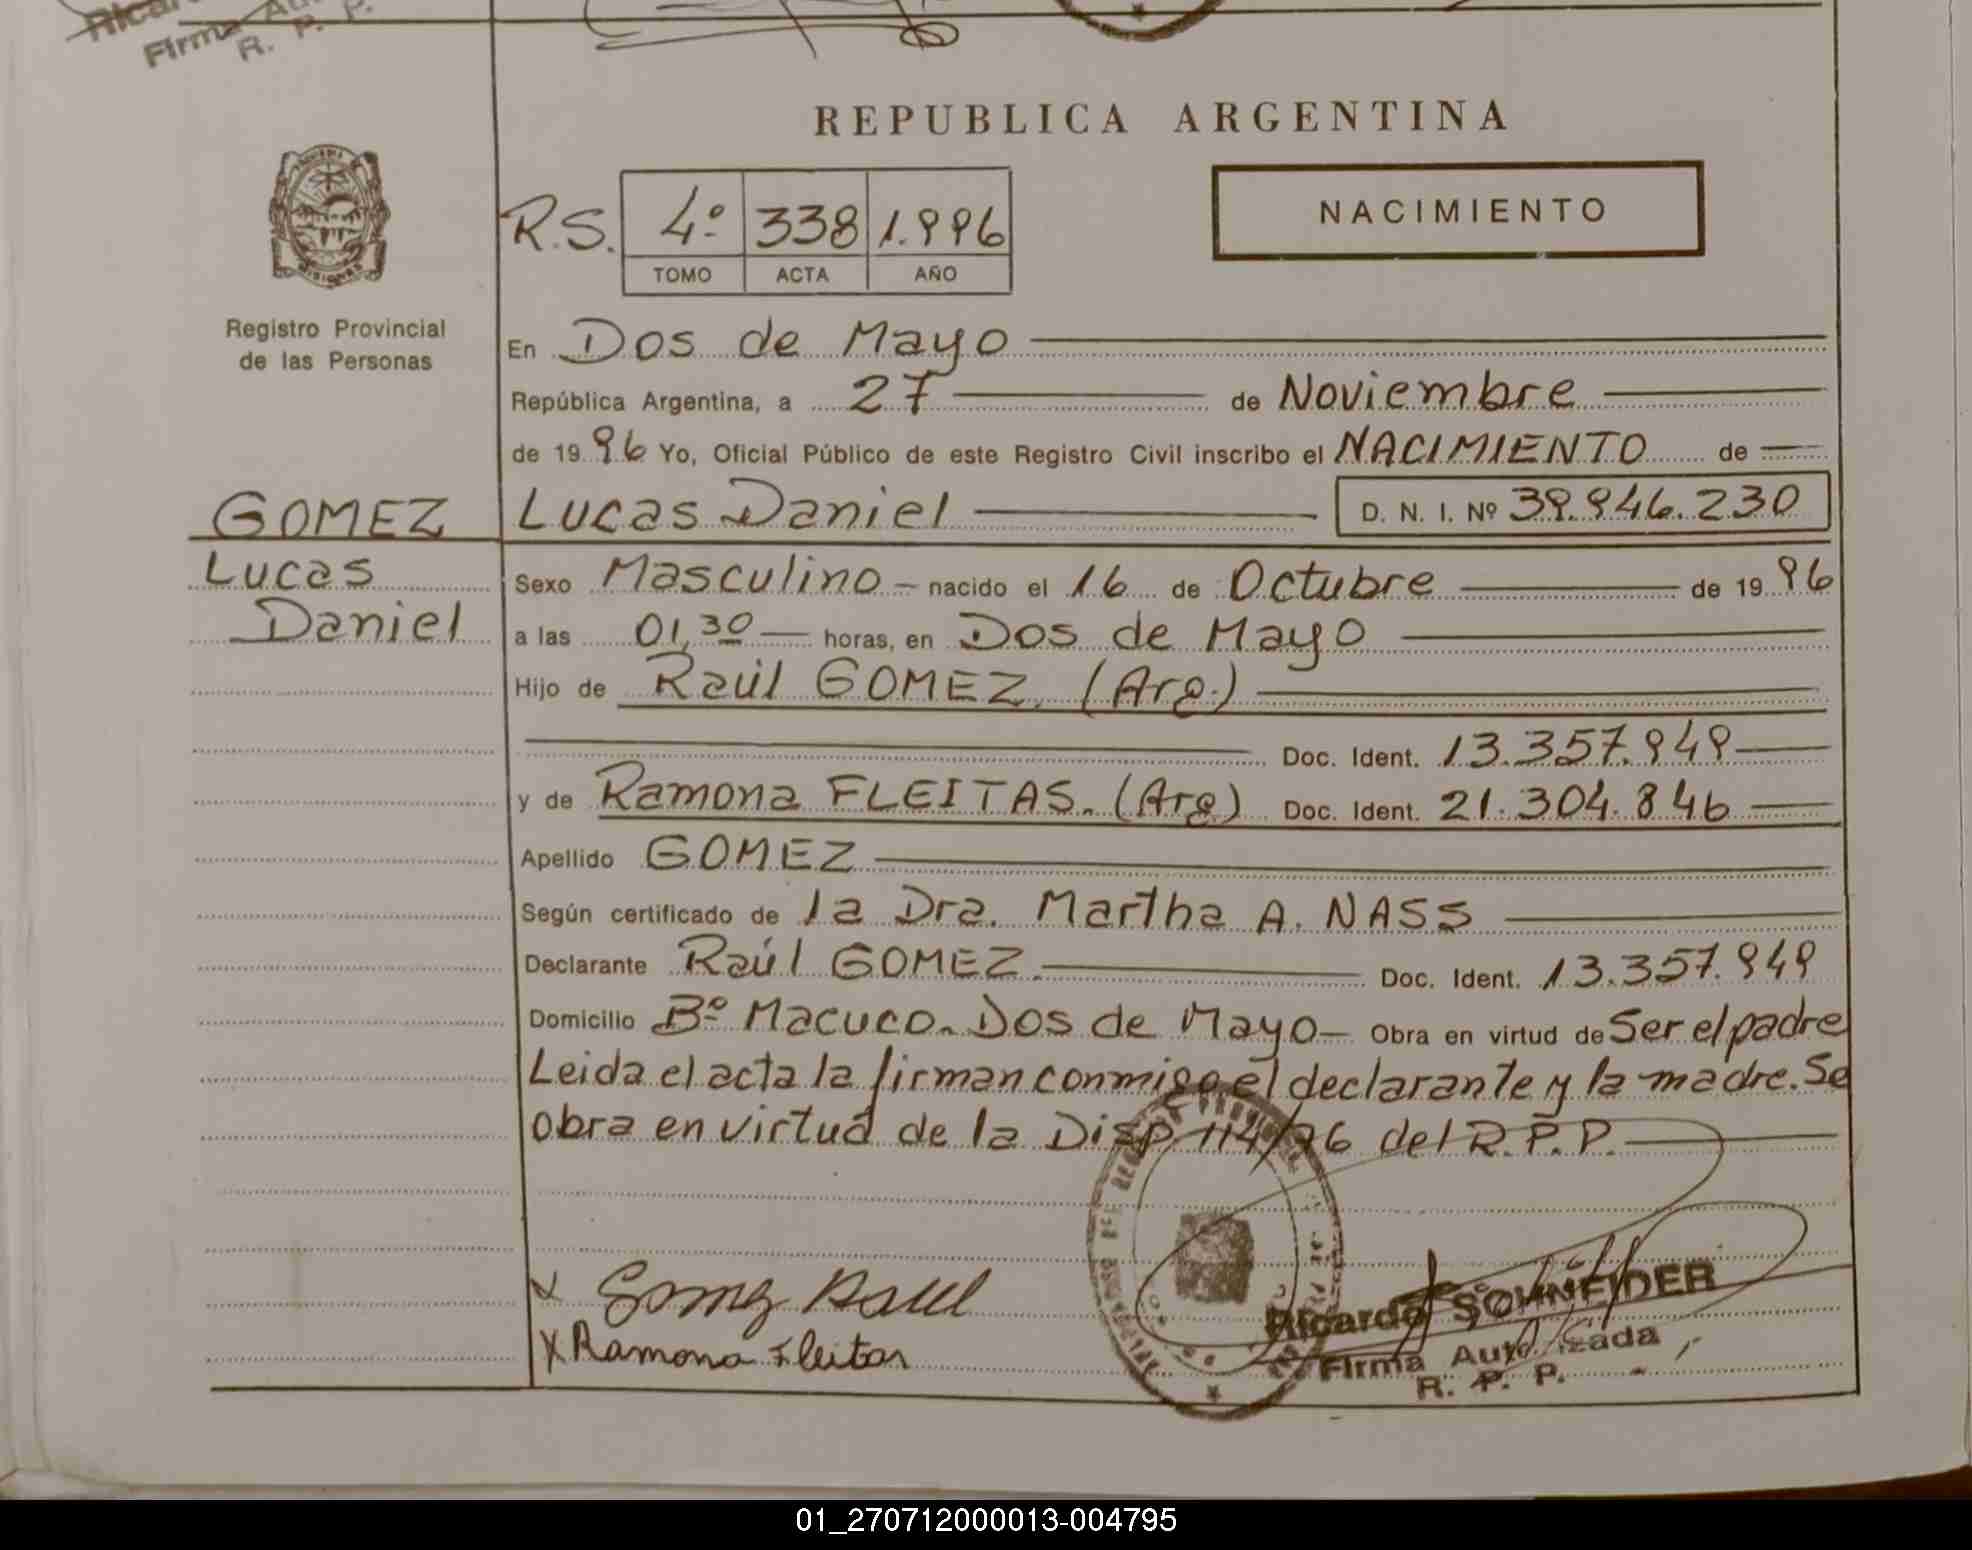 Firma Au
R. P. P.
REPUBLICA ARGENTINA
NACIMIENTO
R.S. 4º 338 1.996
TOMO ACTA AÑO
Registro Provincial
de las Personas
En Dos de Mayo
República Argentina, a 27 de Noviembre
de 1996 Yo, Oficial Público de este Registro Civil inscribo el NACIMIENTO de
GOMEZ Lucas Daniel D. N. I. Nº 39.946.230
Lucas
Daniel
Sexo Masculino nacido el 16 de Octubre de 1996
a las 01,30 horas, en Dos de Mayo
Hijo de Raúl GOMEZ. (Arg.)
Doc. Ident. 13.357.949
y de Ramona FLEITAS. (Arg) Doc. Ident. 21.304.846
Apellido GOMEZ
Según certificado de la Dra. Martha A. NASS
Declarante Raúl GOMEZ. Doc. Ident. 13.357.949
Domicilio Bº Macuco. Dos de Mayo Obra en virtud de Ser el padre
Leida el acta la firman conmigo el declarante y la madre. Se
obra en virtud de la Disp. 114/96 del R.P.P.
x Gomez Raul
x Ramona Fleitas
Ricardo SCHNEIDER
Firma Autorizada
R. P. P.
01_270712000013-004795